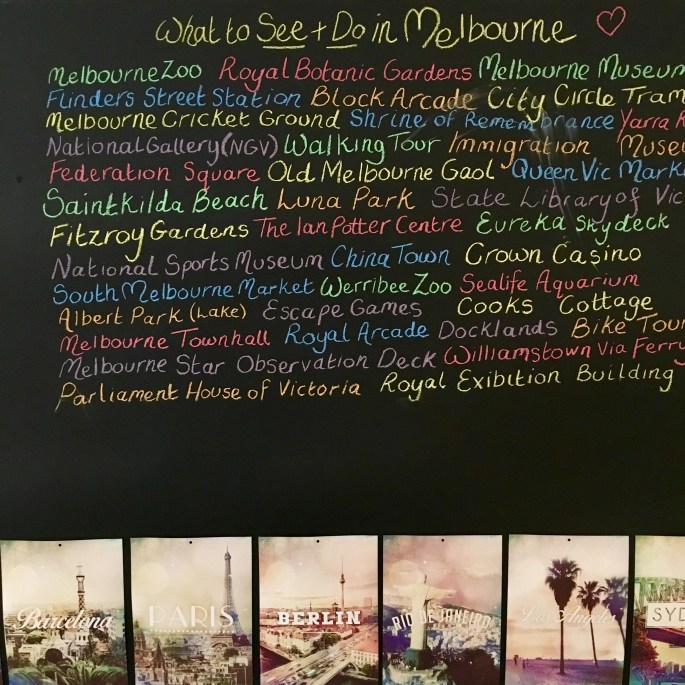 What to See + Do in Melbourne
Melbourne Zoo Royal Botanic Gardens Melbourne Museum
Flinders Street Station Block Arcade City Circle Tram
Melbourne Cricket Ground Shrine of Remembrance Yarra R
National Gallery (NGV) Walking Tour Immigration Museu
Federation Square Old Melbourne Gaol Queen Vic Marke
Saint Kilda Beach Luna Park State Library of Vic
Fitzroy Gardens The Ian Potter Centre Eureka Skydeck
National Sports Museum China Town Crown Casino
South Melbourne Market Werribee Zoo Sealife Aquarium
Albert Park (Lake) Escape Games Cooks Cottage
Melbourne Townhall Royal Arcade Docklands Bike Tour
Melbourne Star Observation Deck Williamstown Via Ferry
Parliament House of Victoria Royal Exibition Building
Barcelona
PARIS
BERLIN
RIO DE JANEIRO
Los Angeles
SYD